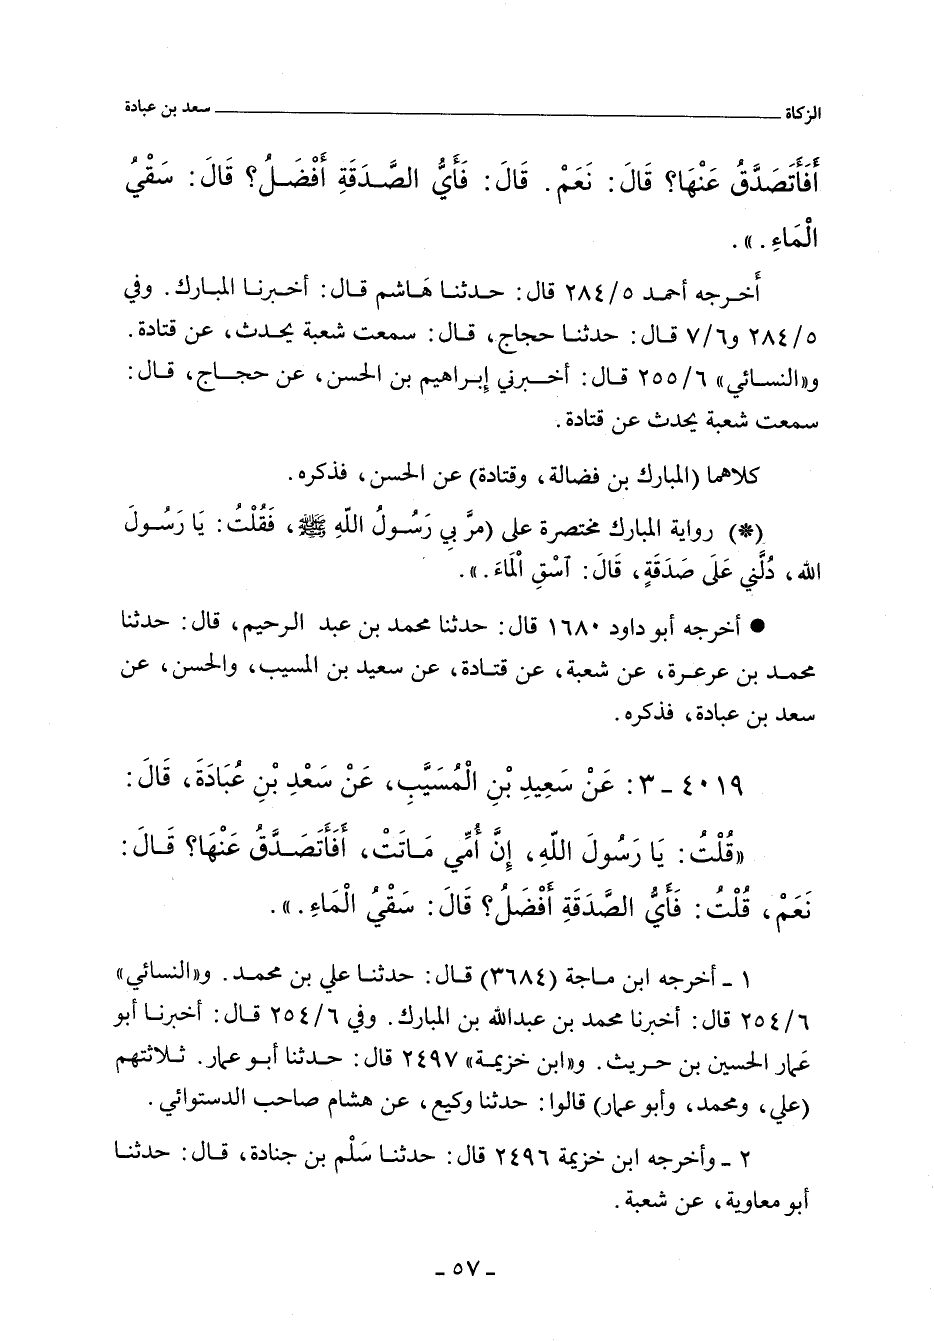 الزكاة ــــــ سعد بن عبادة
أَفَأَتَصَدَّقُ عَنْهَا؟ قَالَ: نَعَمْ. قَالَ: فَأَيُّ الصَّدَقَةِ أَفْضَلُ؟ قَالَ: سَقْيُ
الْمَاءِ.».
أَخرجه أحمد ٢٨٤/٥ قال: حدثنا هَاشم قال: أخبرنا المبارك. وفي
٢٨٤/٥ و٧/٦ قال: حدثنا حجاج، قال: سمعت شعبة يحدث، عن قتادة.
و«النسائي» ٢٥٥/٦ قال: أخبرني إبراهيم بن الحسن، عن حجاج، قال:
سمعت شعبة يحدث عن قتادة.
كلاهما (المبارك بن فضالة، وقتادة) عن الحسن، فذكره.
(*) رواية المبارك مختصرة على (مرَّ بي رَسُولُ اللّهِ ﷺ، فَقُلْتُ: يَا رَسُولَ
الله، دُلَّنِي عَلَى صَدَقَةٍ، قَالَ: آسْقِ الْمَاءَ.».
● أخرجه أبو داود ١٦٨٠ قال: حدثنا محمد بن عبد الرحيم، قال: حدثنا
محمد بن عرعرة، عن شعبة، عن قتادة، عن سعيد بن المسيب، والحسن، عن
سعد بن عبادة، فذكره.
٤٠١٩ ـ ٣: عَنْ سَعِيدِ بْنِ الْمُسَيَّبِ، عَنْ سَعْدِ بْنِ عُبَادَةَ، قَالَ:
«قُلْتُ: يَا رَسُولَ اللّهِ، إِنَّ أُمِّي مَاتَتْ، أَفَأَتَصَدَّقُ عَنْهَا؟ قَالَ:
نَعَمْ، قُلْتُ: فَأَيُّ الصَّدَقَةِ أَفْضَلُ؟ قَالَ: سَقْيُ الْمَاءِ.».
١ ـ أخرجه ابن ماجة (٣٦٨٤) قال: حدثنا علي بن محمد. و«النسائي»
٢٥٤/٦ قال: أخبرنا محمد بن عبدالله بن المبارك. وفي ٢٥٤/٦ قال: أخبرنا أبو
عَمار الحسين بن حريث. و«ابن خزيمة» ٢٤٩٧ قال: حدثنا أبو عمار. ثلاثتهم
(علي، ومحمد، وأبو عمار) قالوا: حدثنا وكيع، عن هشام صاحب الدستوائي.
٢ ـ وأخرجه ابن خزيمة ٢٤٩٦ قال: حدثنا سَلْم بن جنادة، قال: حدثنا
أبو معاوية، عن شعبة.
ـ ٥٧ ـ